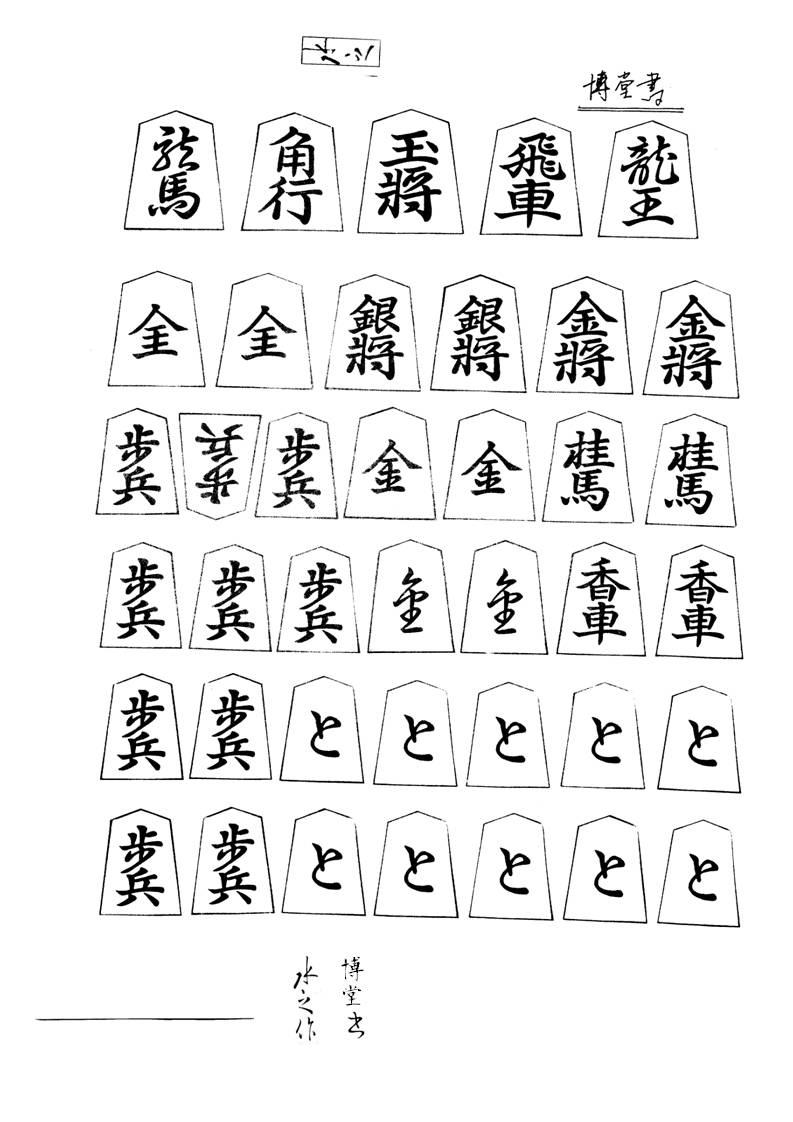 博堂書
龍馬 角行 玉將 飛車 龍王
全 全 銀將 銀將 金將 金將
歩兵 歩兵 歩兵 金 金 桂馬 桂馬
歩兵 歩兵 歩兵 金 金 香車 香車
歩兵 歩兵 と と と と と
歩兵 歩兵 と と と と と
博堂書
水之作